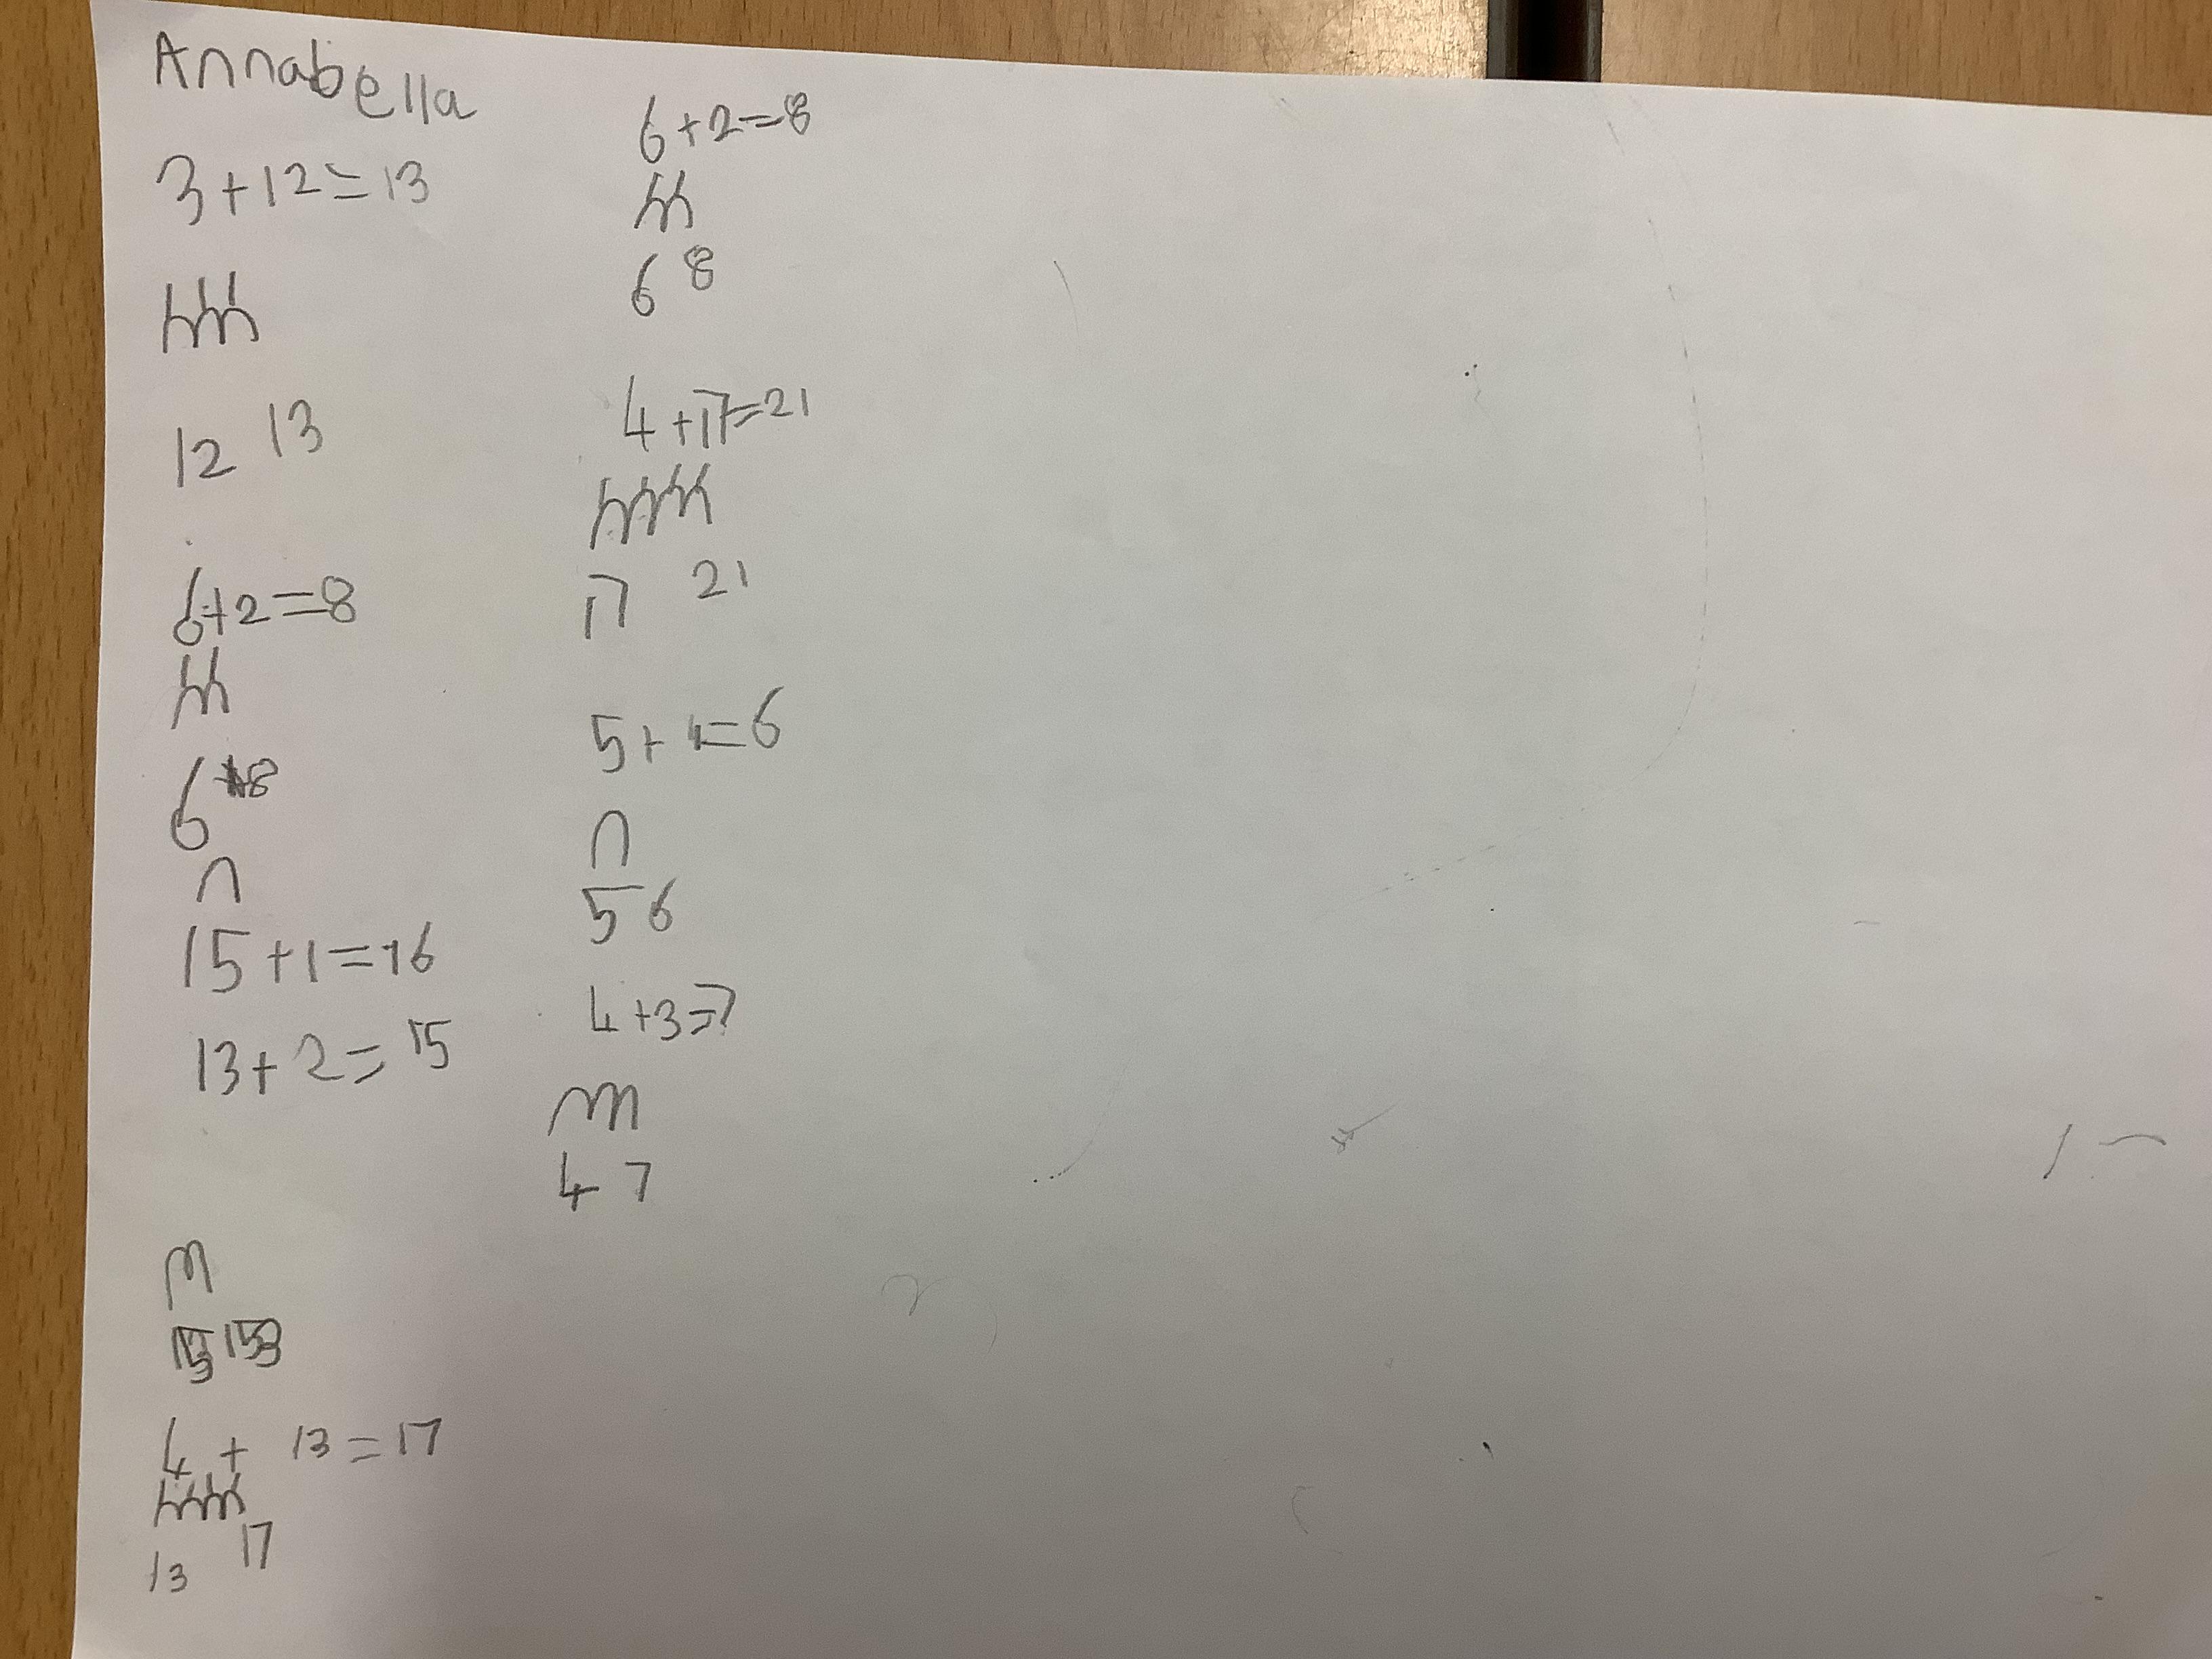 Annabella
3+12=13
12 13
6+2=8
6 8
15+1=16
13+2=15
4+13=17
13 17
6+2=8
6 8
4+17=21
17 21
5+1=6
5 6
4+3=7
4 7